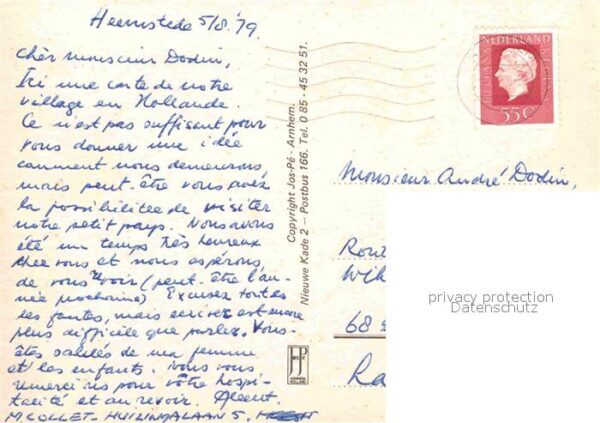 Heemstede 5/8 '79.
Chèr monsieur Dodin,
Ici une carte de notre
village en Hollande.
Ce n'est pas suffisent pour
vous donner une idée
comment nous demeurons
mais peut-être vous avez
la possibilitee de visiter
notre petit pays. Nous avons
été un temps très heureux
chez vous et nous espérons
de vous voir (peut-être l'an-
née prochaine) Excusez toutes
les fautes, mais écrire est encore
plus difficile que parler. Vous-
êtes salués de ma femme
et les enfants. Nous vous
remercions pour vôtre hospi-
talité et au revoir.
M. COLLET - HUIZINGALAAN 5.
Copyright Jos-Pé - Arnhem.
Nieuwe Kade 2 - Postbus 166. Tel. 0 85 - 45 32 51.
JosPé
ARNHEM
HOLLAND
NEDERLAND
JULIANA REGINA
55 c
Monsieur André Dodin,
Rout
68
Ra
privacy protection
Datenschutz